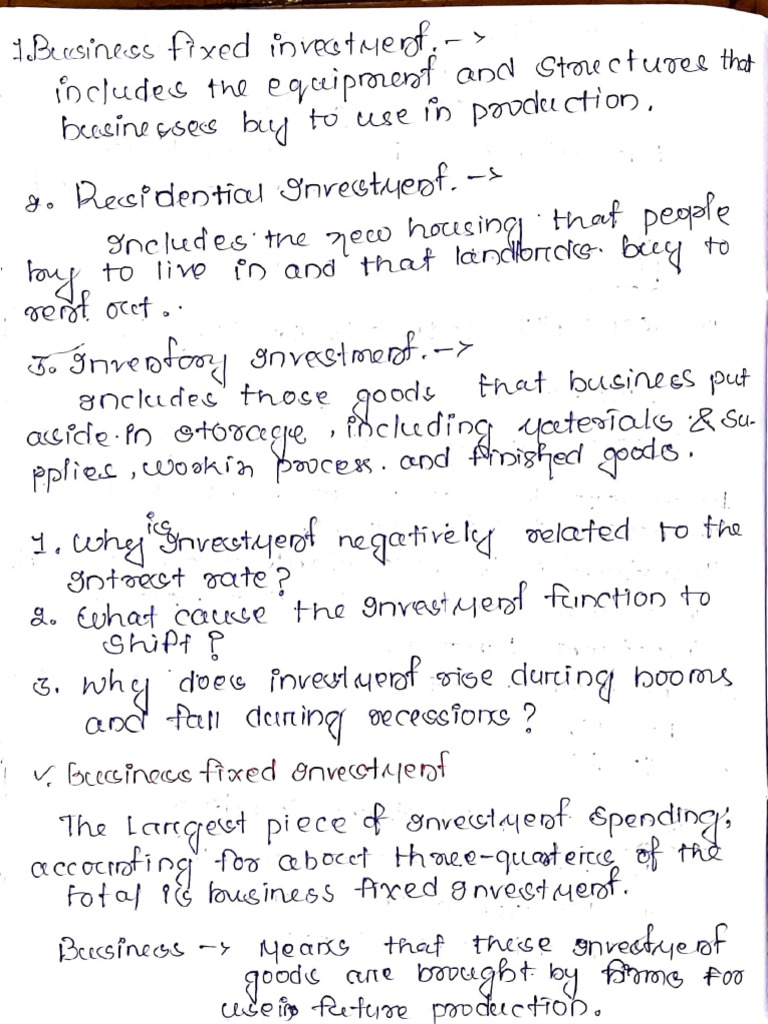 1. Business fixed investment. ->
includes the equipment and structures that
businesses buy to use in production.
2. Residential Investment. ->
Includes the new housing that people
buy to live in and that landlords buy to
rent out.
3. Inventory Investment. ->
Includes those goods that business put
aside in storage, including materials & su-
pplies, work in process. and finished goods.
1. Why is Investment negatively related to the
Intrest rate?
2. What cause the Investment function to
Shift?
3. Why does investment rise during booms
and fall during recessions?
✓. Business fixed Investment
The Largest piece of Investment Spending,
accounting for about three-quarters of the
total is business fixed Investment.
Business -> Means that these Investment
goods are brought by firms for
use in future production.